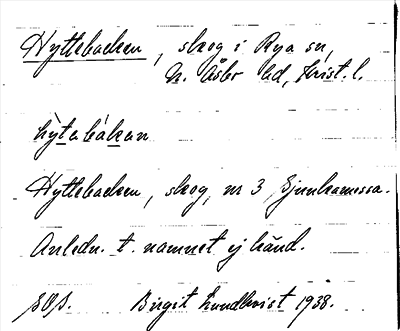 Hyttebacken, skog i Rya sn,
N. Åsbo hd, Krist. l.
hỳtabákan
Hyttebacken, skog, nr 3
Anledn. t. namnet ej känd.
Birgit Lundkvist 1938.